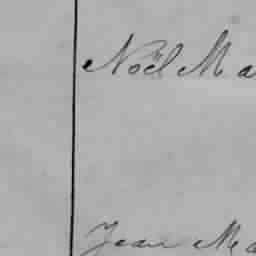 Noël Ma
Jean Ma